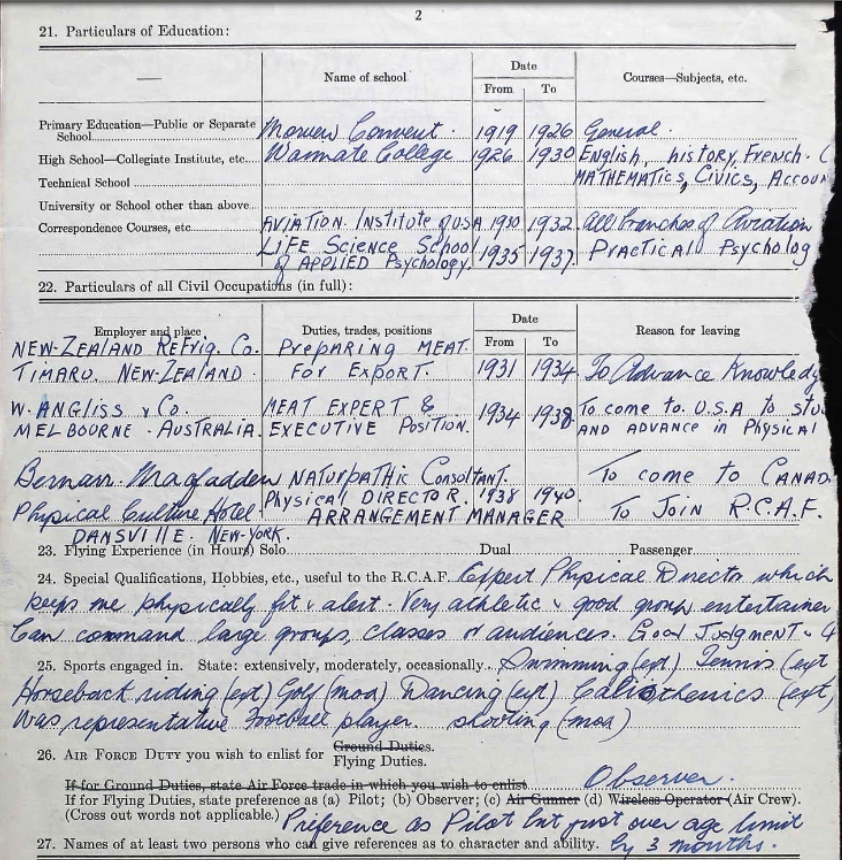 2
21. Particulars of Education:
Name of school
Date
From To
Courses—Subjects, etc.
Primary Education—Public or Separate School Convent. 1919 1926 General.
High School—Collegiate Institute, etc. Waimate College 1926 1930 English, history, French. C
MATHEMATICS, CIVICS, ACCOUN
Technical School
University or School other than above
Correspondence Courses, etc. AVIATION. Institute of USA 1930 1932 All branches of Aviation
LIFE Science School of APPLIED Psychology. 1935 1937. Practical Psycholog
22. Particulars of all Civil Occupations (in full):
Employer and place Duties, trades, positions
Date
From To
Reason for leaving
NEW-ZEALAND Refrig. Co. Preparing MEAT.
TIMARU. NEW-ZEALAND. For Export. 1931 1934 To Advance Knowledg
W. ANGLISS & Co. MEAT EXPERT & 1934 1938 To come to U.S.A to stu
MELBOURNE. AUSTRALIA. EXECUTIVE POSITION. AND ADVANCE in Physical
Bernarr. Macfadden NATURPATHIC Consultant. To come to CANAD
Physical Culture Hotel. Physical DIRECTOR. 1938 1940. To Join R.C.A.F.
DANSVILLE. NEW-YORK. ARRANGEMENT MANAGER
23. Flying Experience (in Hours) Solo Dual Passenger
24. Special Qualifications, Hobbies, etc., useful to the R.C.A.F. Expert Physical Director which
keeps me physically fit & alert. Very athletic & good group entertainer
Can command large groups, classes or audiences. Good Judgment &
25. Sports engaged in. State: extensively, moderately, occasionally. Swimming (ext) Tennis (ext
Horseback riding (ext) Golf (mod) Dancing (ext) Calisthenics (ext,
Was representative Football player. shooting (mod)
26. AIR FORCE DUTY you wish to enlist for Ground Duties.
Flying Duties.
If for Ground Duties, state Air Force trade in which you wish to enlist
Observer.
If for Flying Duties, state preference as (a) Pilot; (b) Observer; (c) Air Gunner (d) Wireless Operator (Air Crew).
(Cross out words not applicable.) Preference as Pilot but just over age limit
by 3 months.
27. Names of at least two persons who can give references as to character and ability.